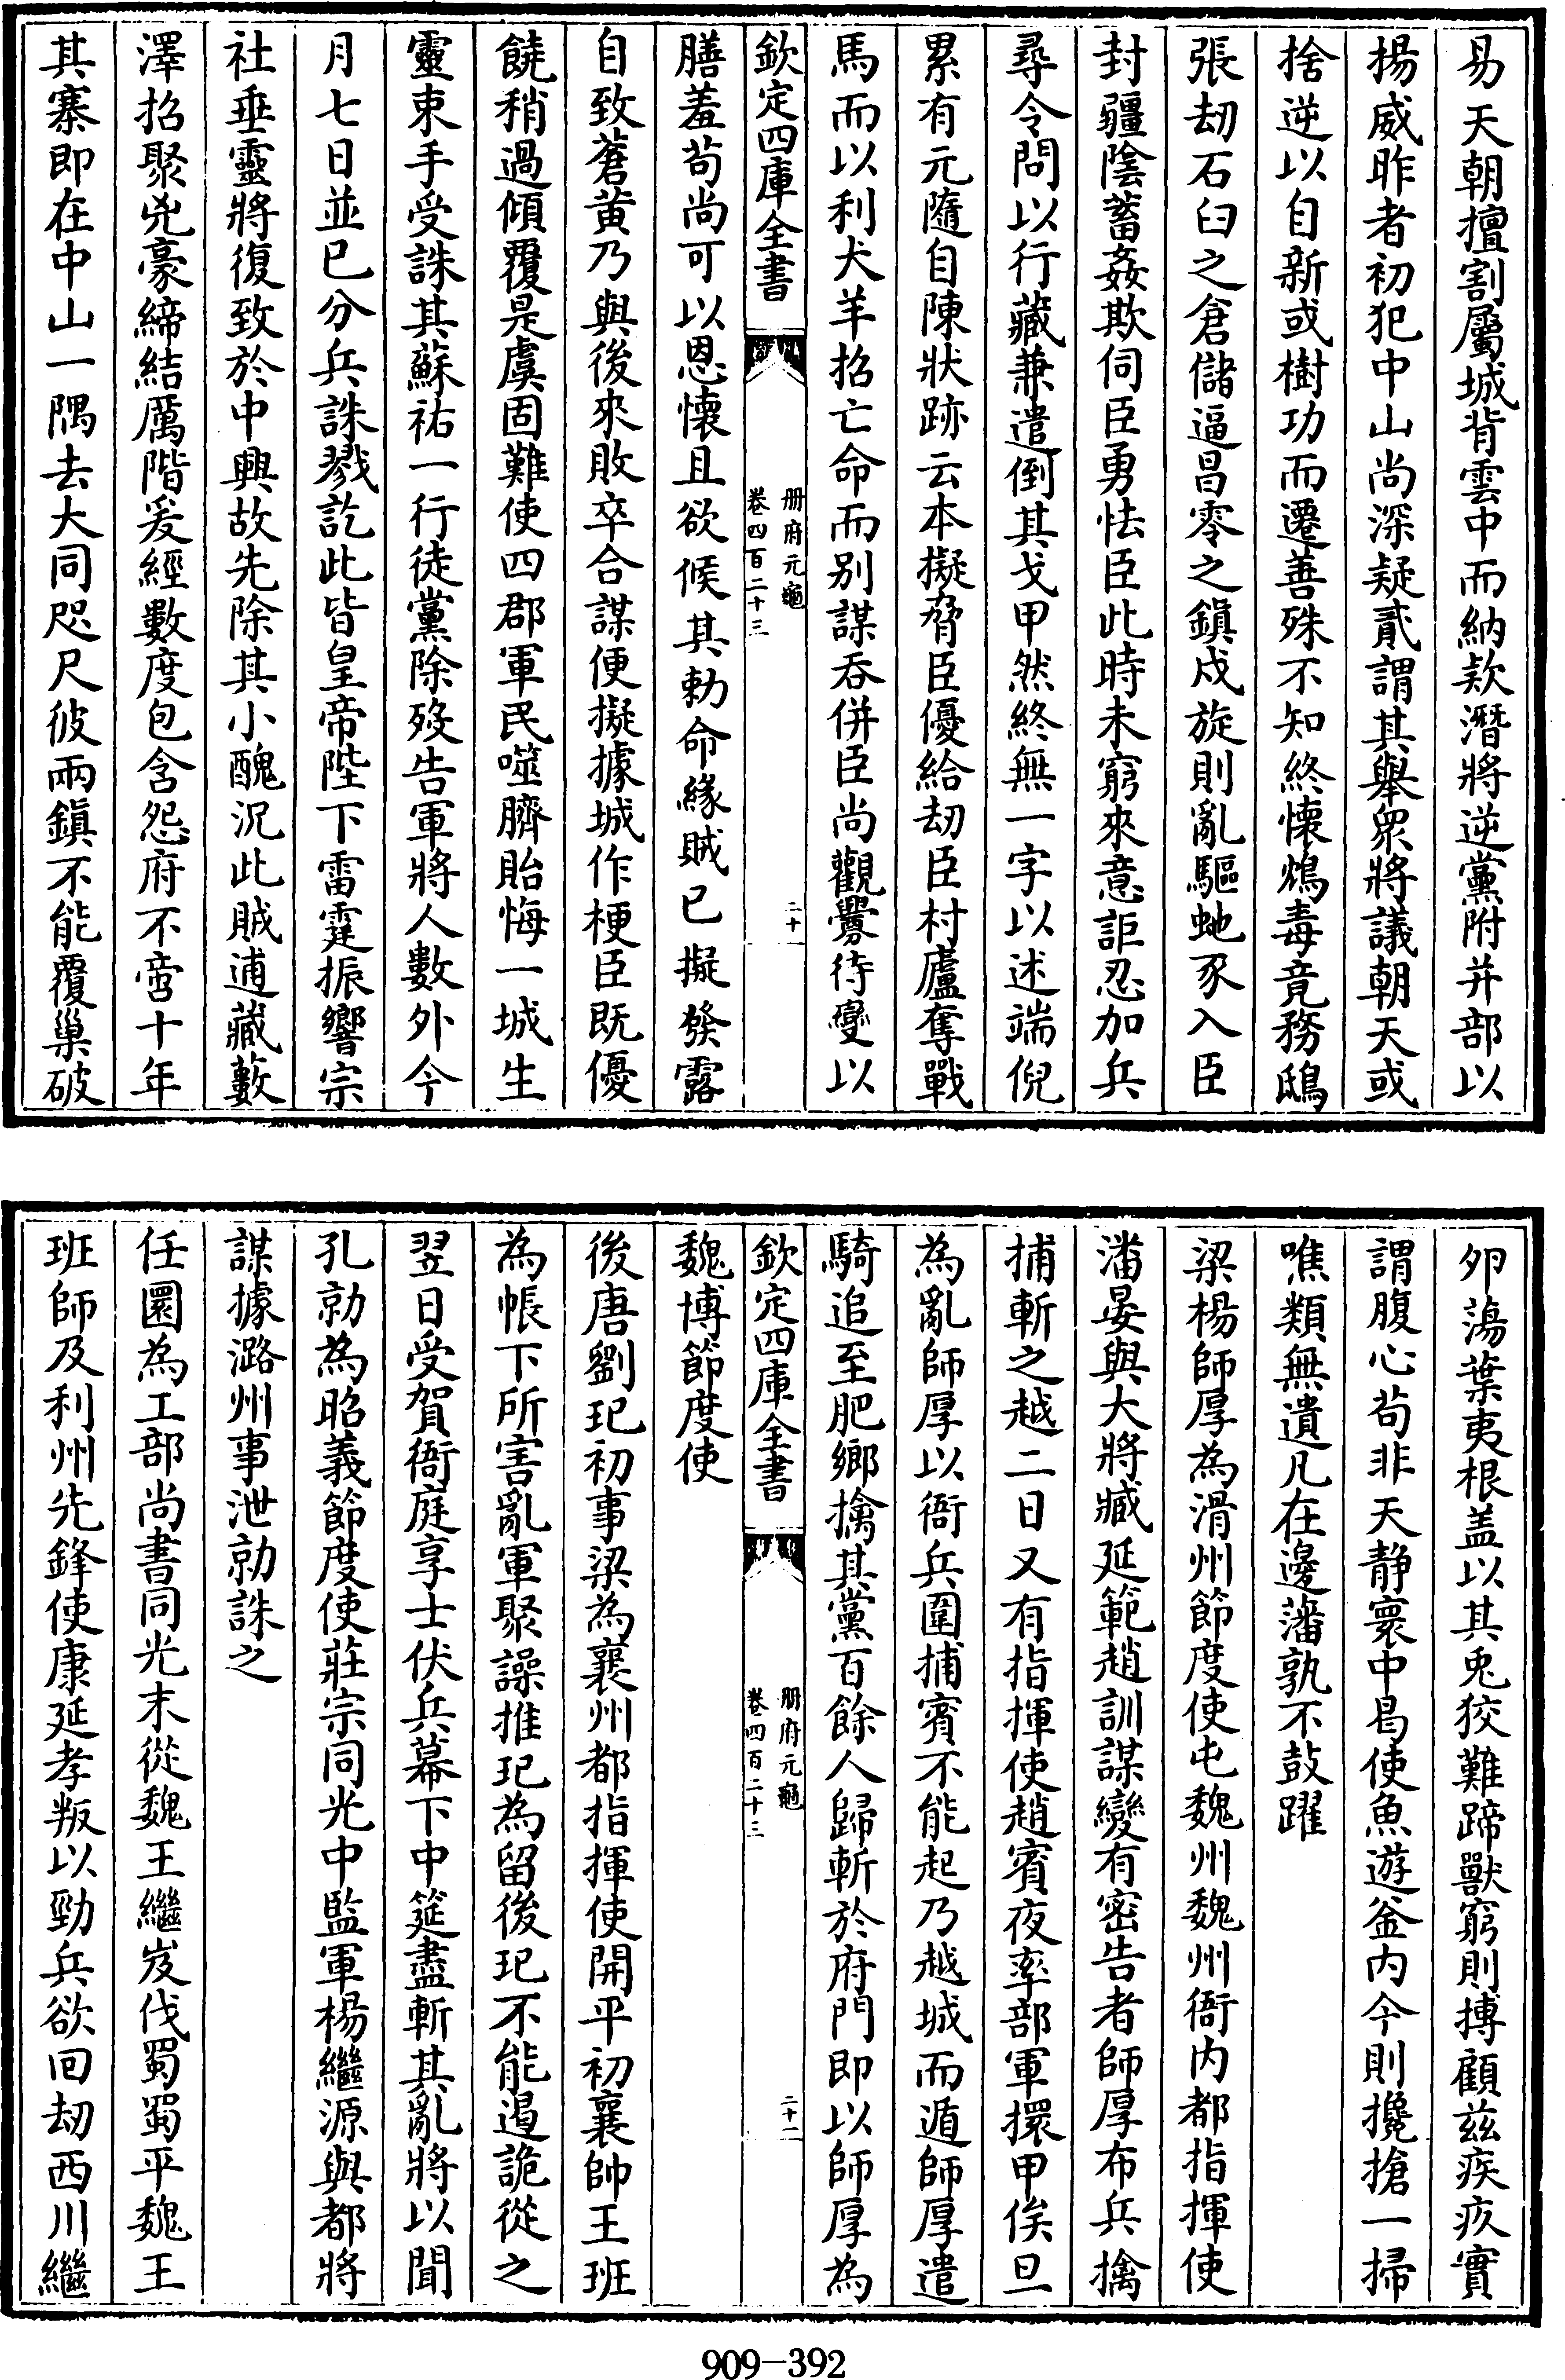 易天朝擅割屬城背雲中而納欵潛將逆黨附并部以
揚威昨者初犯中山尚深疑貳謂其舉眾將議朝天或
捨逆以自新或樹功而遷善殊不知終懷鴆毒竟務鴟
張刼石臼之倉儲逼昌零之鎮戍旋則亂驅虵豕入臣
封疆陰蓄姦欺伺臣勇怯臣此時未窮來意詎忍加兵
尋令問以行藏兼遣倒其戈甲然終無一字以述端倪
累有元隨自陳狀跡云本擬脅臣優給刼臣村廬奪戰
馬而以利犬羊招亡命而別謀吞併臣尚觀釁待變以
欽定四庫全書
冊府元龜
卷四百二十三
二十
膳羞苟尚可以恩懷且欲候其勅命緣賊已擬發露
自致蒼黃乃與後來敗卒合謀便擬據城作梗臣既優
饒稍過傾覆是虞固難使四郡軍民噬臍貽悔一城生
靈束手受誅其蘇祐一行徒黨除歿告軍將人數外今
月七日並已分兵誅戮訖此皆皇帝陛下雷霆振響宗
社垂靈將復致於中興故先除其小醜況此賊逋藏藪
澤招聚兇豪締結厲階爰經數度包含怨府不啻十年
其寨即在中山一隅去大同咫尺彼兩鎮不能覆巢破
卵蕩葉夷根盖以其兎狡難蹄獸窮則搏顧兹疾疚實
謂腹心苟非天静寰中曷使魚遊釜内今則攙搶一掃
噍類無遺凡在邊藩孰不鼓躍
梁楊師厚為滑州節度使屯魏州魏州衙内都指揮使
潘晏與大將臧延範趙訓謀變有密告者師厚布兵擒
捕斬之越二日又有指揮使趙賓夜率部軍擐甲俟旦
為亂師厚以衙兵圍捕賓不能起乃越城而遁師厚遣
騎追至肥鄉擒其黨百餘人歸斬於府門即以師厚為
欽定四庫全書
冊府元龜
卷四百二十三
二十一
魏博節度使
後唐劉玘初事梁為襄州都指揮使開平初襄帥王班
為帳下所害亂軍聚譟推玘為留後玘不能遏詭從之
翌日受賀衙庭享士伏兵幕下中筵盡斬其亂將以聞
孔勍為昭義節度使莊宗同光中監軍楊繼源與都將
謀據潞州事泄勍誅之
任圜為工部尚書同光末從魏王繼岌伐蜀蜀平魏王
班師及利州先鋒使康延孝叛以勁兵欲回刼西川繼
909-392